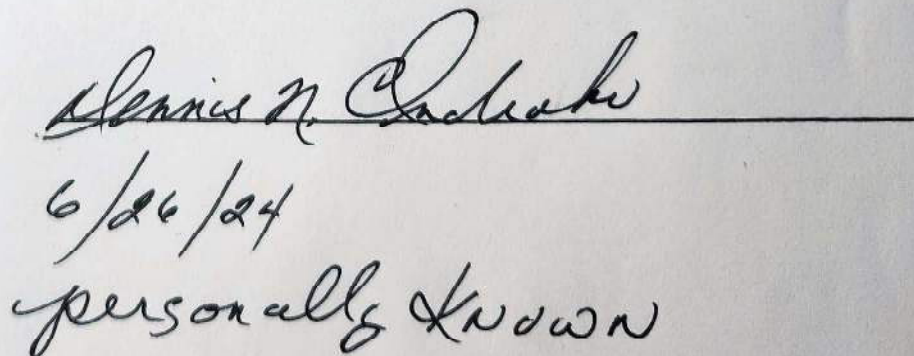 Dennis N.
6/26/24
personally KNOWN